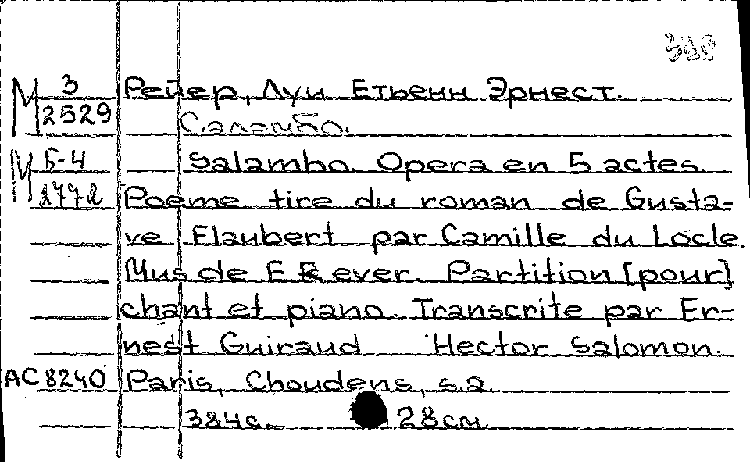 М 3 Рейер, Луи Етьенн Эрнест.
2529 Саламбо.
М Б-4 Salambo. Opera en 5 actes.
Poeme tire du roman de Gusta-
ve Flaubert par Camille du Locle.
Mus de E Reyer. Partition [pour]
chant et piano. Transcrite par Er-
nest Guiraud Hector Salomon.
АС 8240 Paris, Choudens, s.a.
384с. 28см